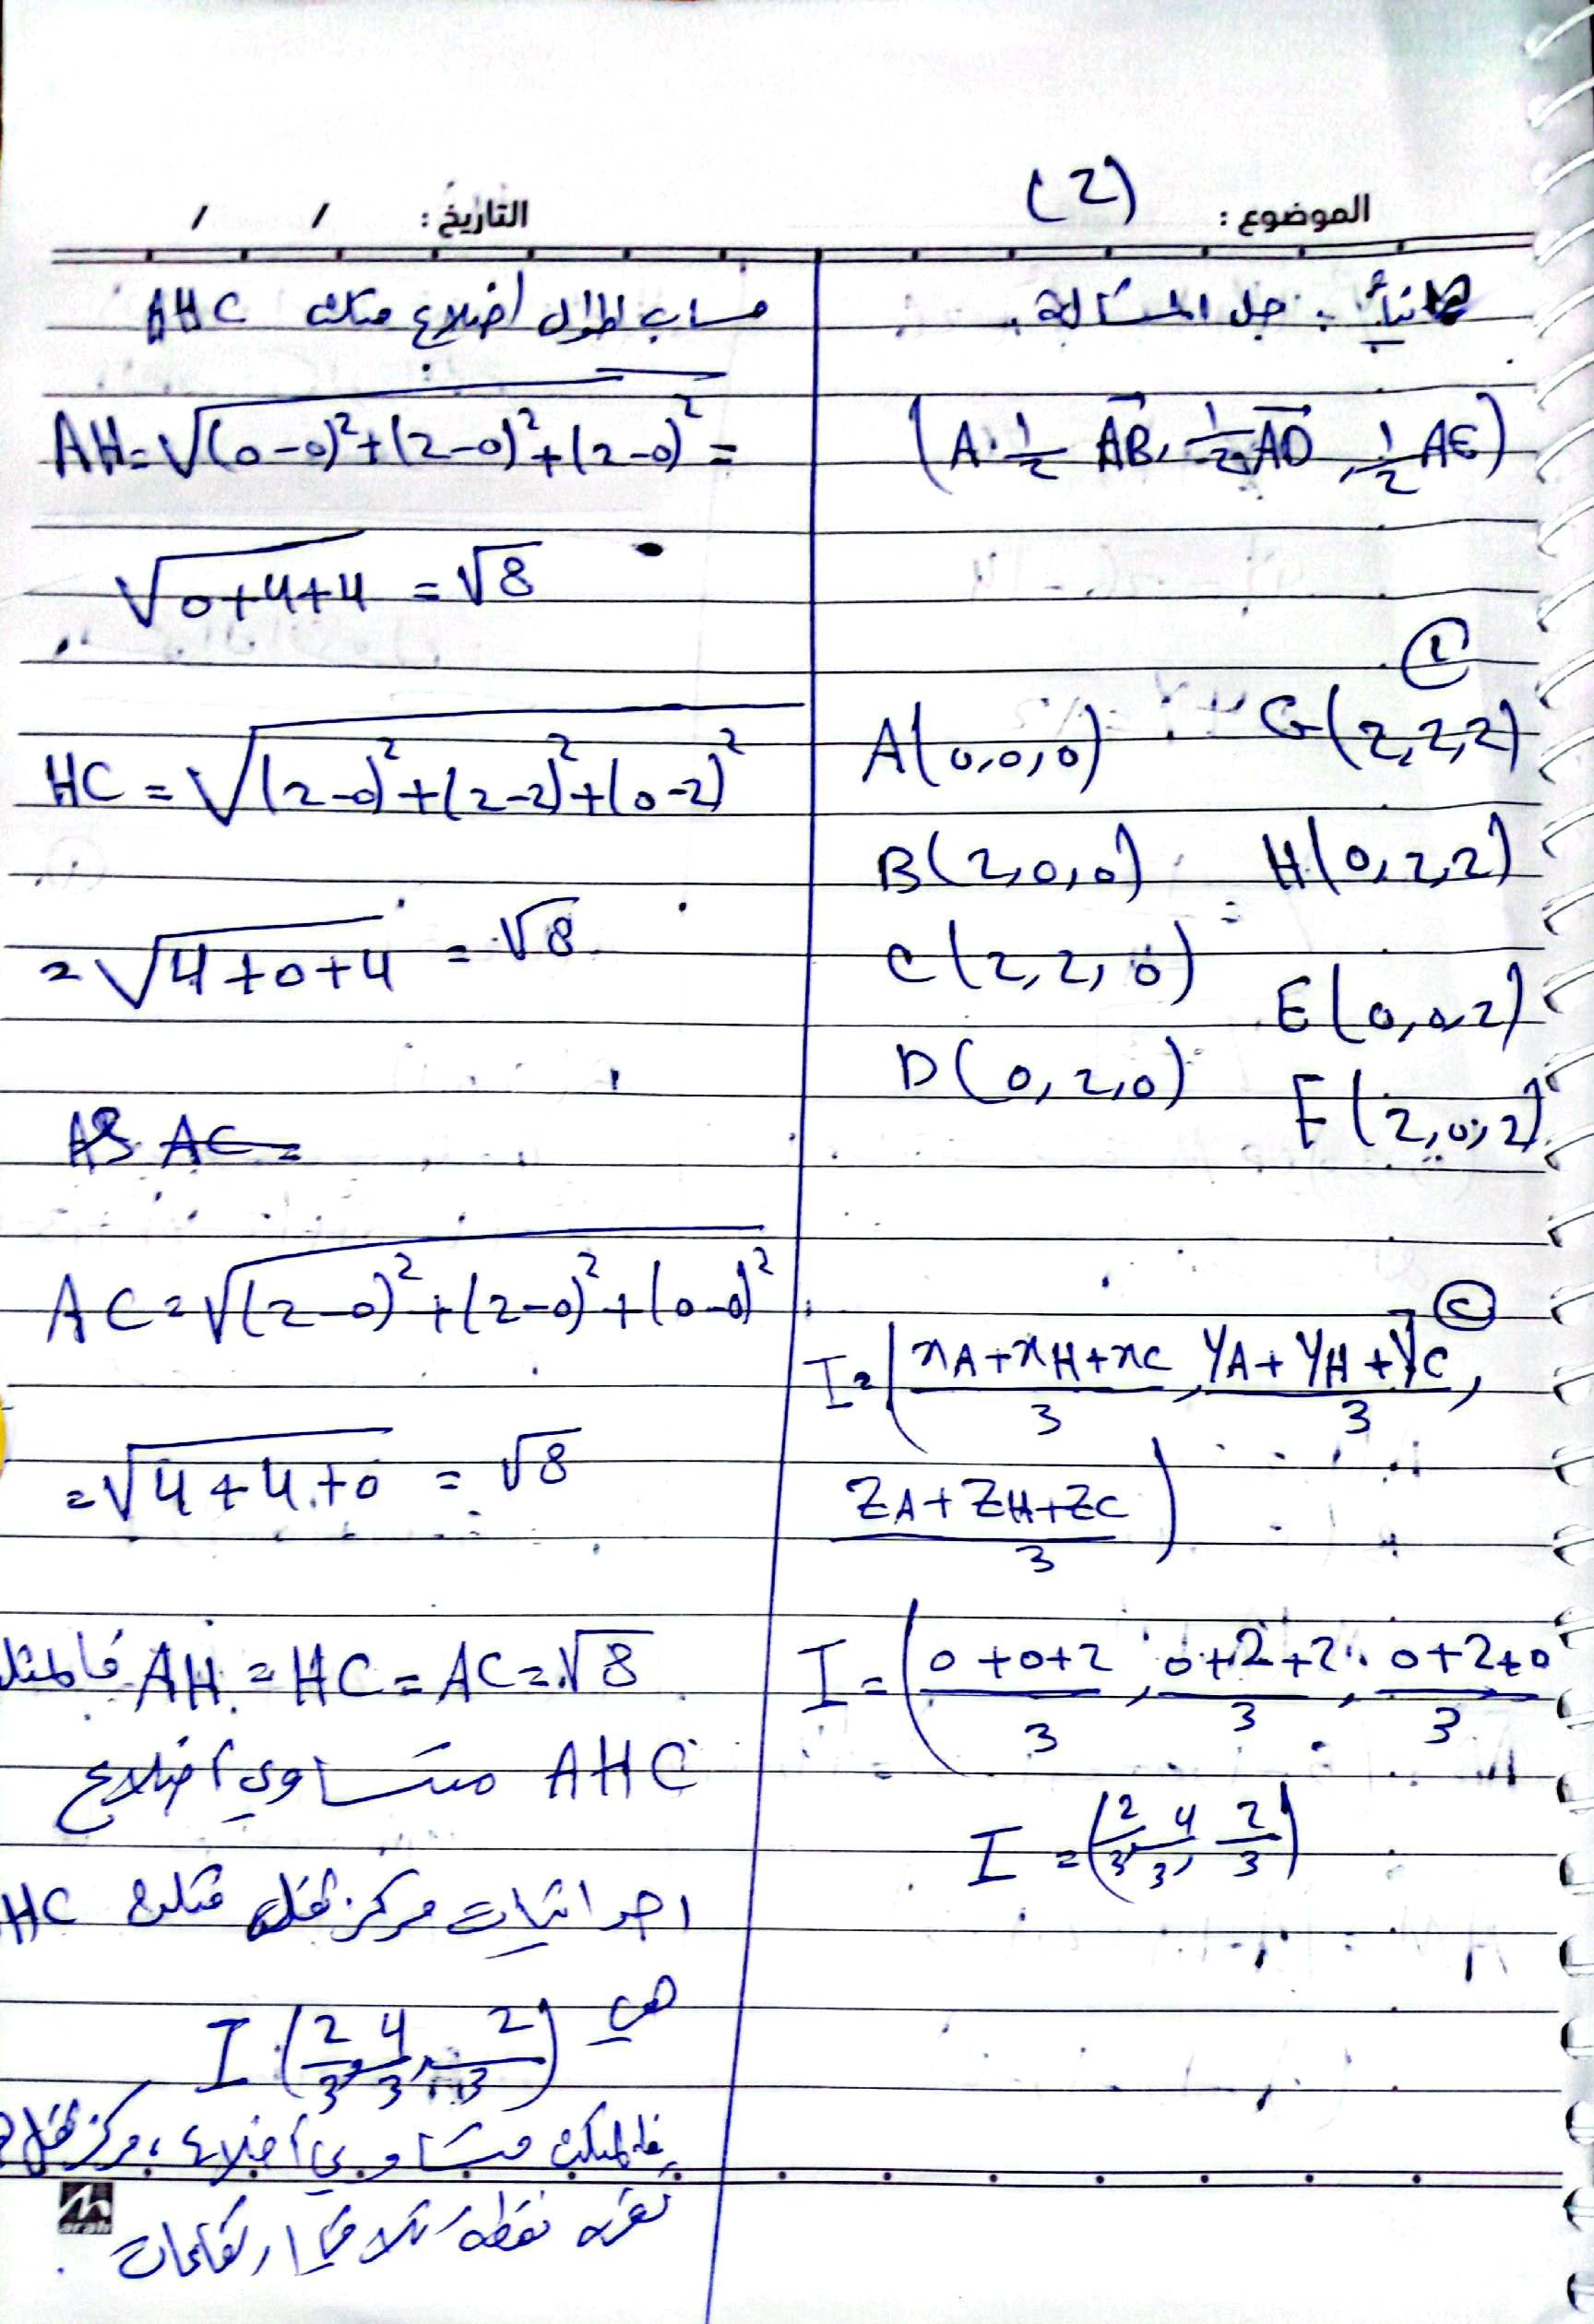 الموضوع : (2)
التاريخ : / /
ثانياً : حل المسألة .
(A, 1/2 AB, 1/2 AD, 1/2 AE)
①
A(0,0,0) G(2,2,2)
B(2,0,0) H(0,2,2)
C(2,2,0) E(0,0,2)
D(0,2,0) F(2,0,2)
②
I = (xA+xH+xC/3, yA+yH+yC/3,
zA+zH+zC/3)
I = (0+0+2/3, 0+2+2/3, 0+2+0/3)
I = (2/3, 4/3, 2/3)
حساب اطوال اضلاع مثلث AHC
:
AH = √(0-0)²+(2-0)²+(2-0)² =
√0+4+4 = √8
HC = √(2-0)²+(2-2)²+(0-2)²
= √4+0+4 = √8
AC =
AC = √(2-0)²+(2-0)²+(0-0)²
= √4+4+0 = √8
AH = HC = AC = √8 فالمثل
AHC متساوي اضلاع
احداثيات مركز ثقل مثلث HC
هي I (2/3, 4/3, 2/3)
فالمثلث متساوي اضلاع ، مركز ثقل
نفسه نقطة تلاقي ارتفاعات .